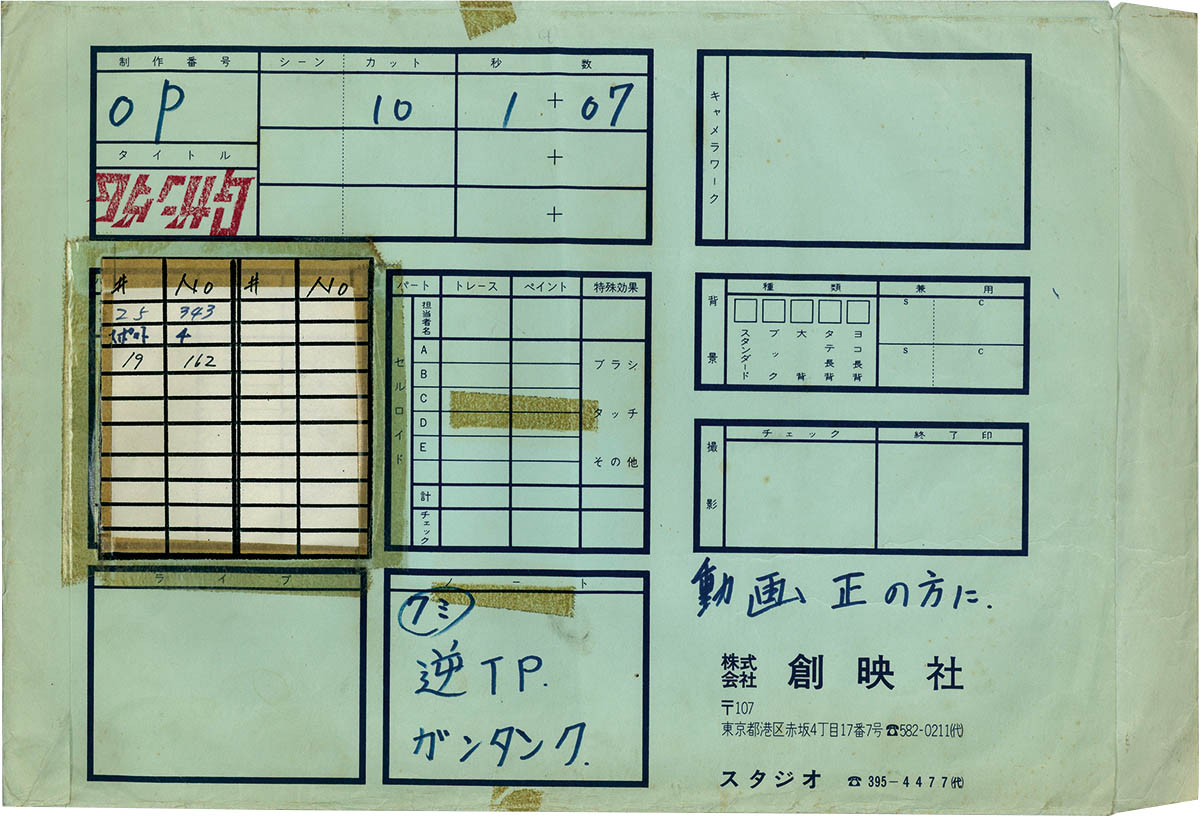 制作番号 シーン カット 秒数
OP 10 1 + 07
タイトル
+
+
キャメラワーク
# No # No
25 343
スポット 4
19 162
パート トレース ペイント 特殊効果
担当者名
セルロイド
A
B
C
D
E
計
チェック
ブラシ
タッチ
その他
背景
種類 兼用
S C
S C
スタンダード
ブック
大背
タテ長背
ヨコ長背
撮影
チェック 終了印
ライブ
ノート
クミ
逆TP.
ガンタンク.
動画 正の方に.
株式会社 創映社
〒107
東京都港区赤坂4丁目17番7号 ☎582-0211(代)
スタジオ ☎ 395-4477(代)